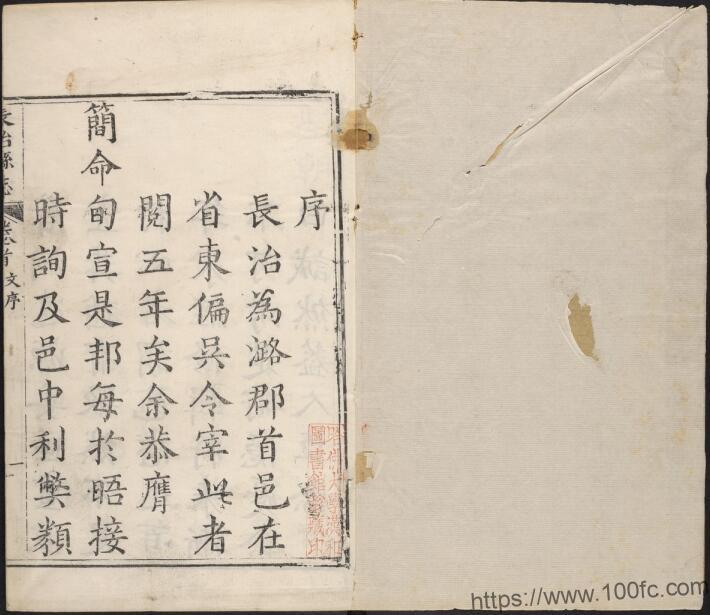 序
長治為潞郡首邑在
省東偏吳令宰此者
閱五年矣余恭膺
簡命旬宣是邦每於晤接
時詢及邑中利獘類
長治縣志
卷首
文序
一
哈佛大學漢和
圖書館珍藏印
https://www.100fc.com